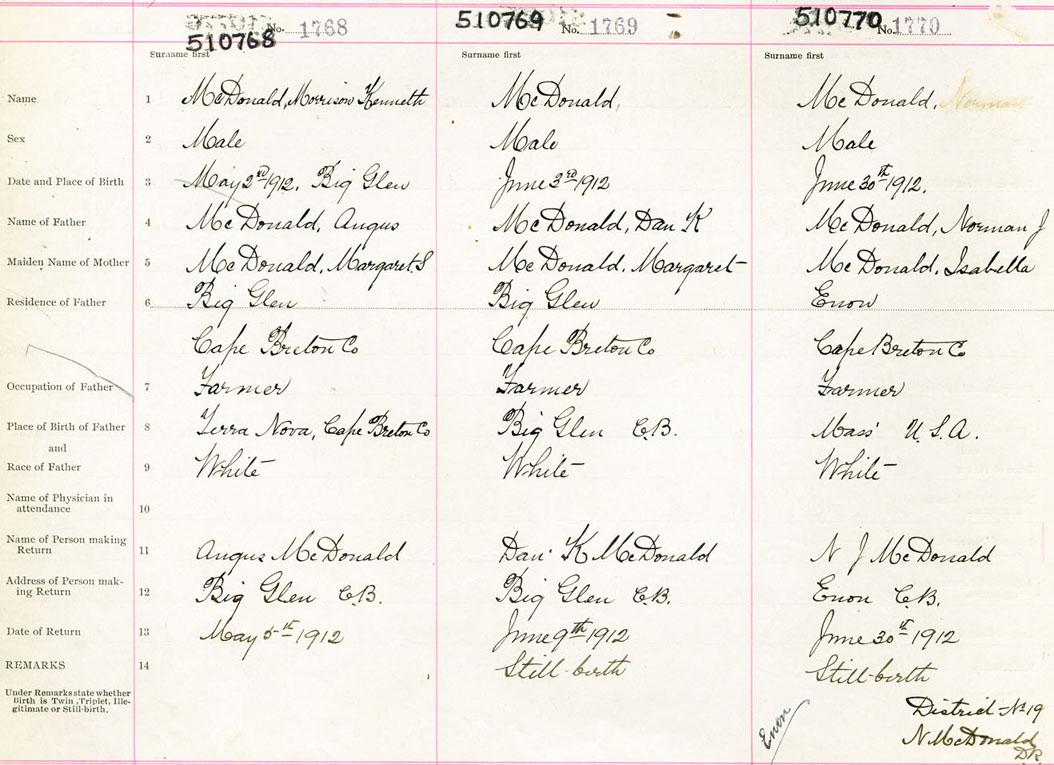 510768 No. 1768 510769 No. 1769 510770 No. 1770
Surname first Surname first Surname first
Name 1 McDonald, Morrison Kenneth McDonald, McDonald, Norman
Sex 2 Male Male Male
Date and Place of Birth 3 May 2nd 1912. Big Glen June 3rd 1912 June 30th 1912.
Name of Father 4 McDonald, Angus McDonald, Dan K McDonald, Norman J
Maiden Name of Mother 5 McDonald, Margaret S McDonald, Margaret McDonald, Isabella
Residence of Father 6 Big Glen Big Glen Enon
Cape Breton Co Cape Breton Co Cape Breton Co
Occupation of Father 7 Farmer Farmer Farmer
Place of Birth of Father 8 Terra Nova, Cape Breton Co Big Glen C.B. Mass' U.S.A.
and
Race of Father 9 White White White
Name of Physician in
attendance 10
Name of Person making
Return 11 Angus McDonald Dan K McDonald N J McDonald
Address of Person mak-
ing Return 12 Big Glen C.B. Big Glen C.B. Enon C.B.
Date of Return 13 May 5th 1912 June 9th 1912 June 30th 1912
REMARKS 14 Still-birth Still-birth
Under Remarks state whether
Birth is Twin, Triplet, Ille-
gitimate or Still-birth.
Enon
District No 19
N McDonald
D.R.